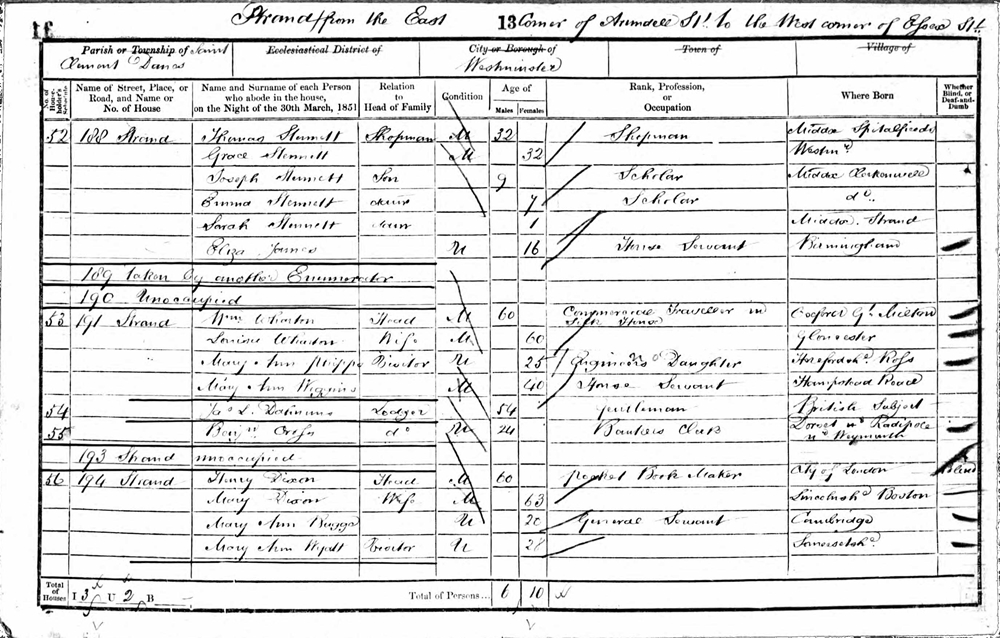 11 Strand from the East 13 Corner of Arundell St. to the West corner of Essex St.
Parish or Township of Saint Clement Danes
Ecclesiastical District of
City or Borough of Westminster
Town of
Village of
No. of House-holder's Schedule
Name of Street, Place, or Road, and Name or No. of House
Name and Surname of each Person who abode in the house, on the Night of the 30th March, 1851
Relation to Head of Family
Condition
Age of Males Females
Rank, Profession, or Occupation
Where Born
Whether Blind, or Deaf-and-Dumb
52 188 Strand Thomas Stennett Shopman M 32 Shopman Middx Spitalfields
Grace Stennett M 32 Westmr
Joseph Stennett Son 9 Scholar Middx Clerkenwell
Emma Stennett daur 7 Scholar do
Sarah Stennett daur 1 Middx. Strand
Eliza James U 16 House Servant Birmingham
189 taken by another Enumerator
190 Unoccupied
53 191 Strand Wm Wharton Head M 60 Commercial Traveller in
Louisa Wharton Wife M 60 Gloucester
Mary Ann Visitor U 25 Daughter Herefordsh. Ross
Mary Ann Wiggins M 40 House Servant Hampstead Road
54 Lodger 54 gentleman British Subject
55 Benjn Cross do U 24 Bankers Clerk Dorset nr Radipole nr Weymouth
193 Strand unoccupied
56 194 Strand Henry Dixon Head M 60 pocket Book Maker City of London Blind
Mary Dixon Wife M 63 Lincolnsh. Boston
Mary Ann U 20 General Servant Cambridge
Mary Ann Wyatt Visitor U 28 Somersetshe.
Total of Houses I 3 U 2 B — Total of Persons... 6 10